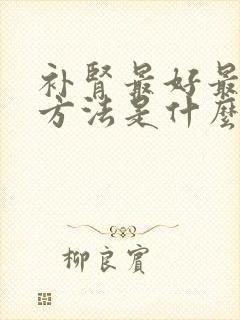 补肾最好最
方法是什麼
柳良賓